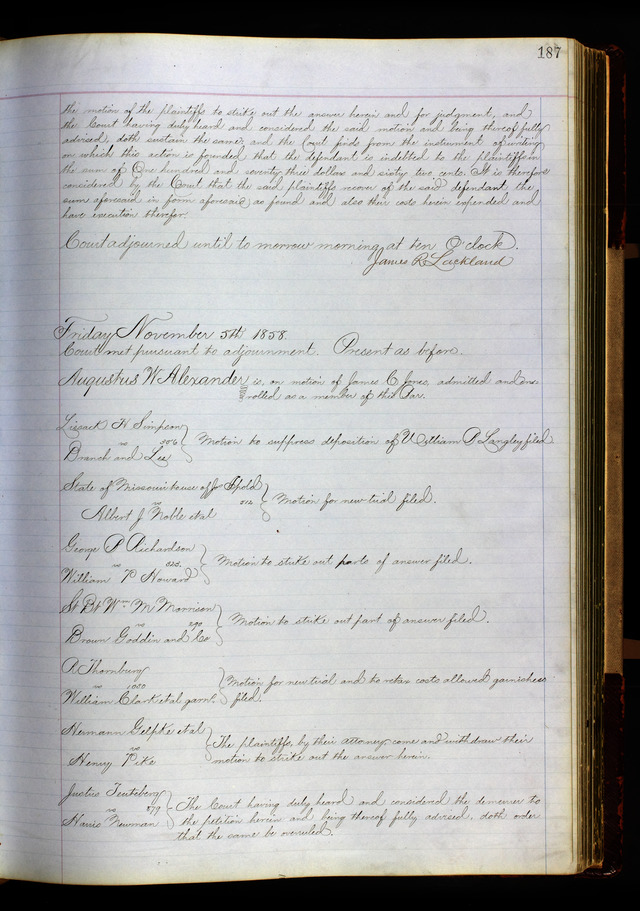 187
the motion of the plaintiffs to strike out the answer herein and for judgment, and
the Court having duly heard and considered the said motion and being thereof fully
advised, doth sustain the same, and the Court finds from the instrument of writing
on which this action is founded that the defendant is indebted to the plaintiffs in
the sum of One hundred and seventy three dollars and sixty two cents. It is therefore
considered by the Court that the said plaintiffs recover of the said defendant, the
sum aforesaid in form aforesaid as found and also their costs herein expended and
have execution therefor.
Court adjourned until to morrow morning at ten O'clock.
James R Lackland
Friday November 5th 1858.
Court met pursuant to adjournment. Present as before.
Augustus W Alexander is, on motion of James C Jones, admitted and en-
rolled as a member of this Bar.
H Simpson
vs 506 Motion to suppress deposition of William P Langley filed
Branch and Lee
State of Missouri house of
vs 212 Motion for new trial filed.
Albert J Noble et al
George P Richardson
vs 525. Motion to strike out parts of answer filed.
William P Howard
St Bt Wm M Morrison
vs 290 Motion to strike out part of answer filed.
Brown Goddin and Co
P. Thornburg Motion for new trial and to retax costs allowed garnishees
vs 1000
William Clark et al garn. filed.
Hermann Gelpke et al
vs The plaintiffs, by their attorney come and withdraw their
Henry Pike motion to strike out the answer herein.
Justus Teuteberg
vs 477 The Court having duly heard and considered the demurrer to
Harris Newman the petition herein and being thereof fully advised, doth order
that the same be overruled.